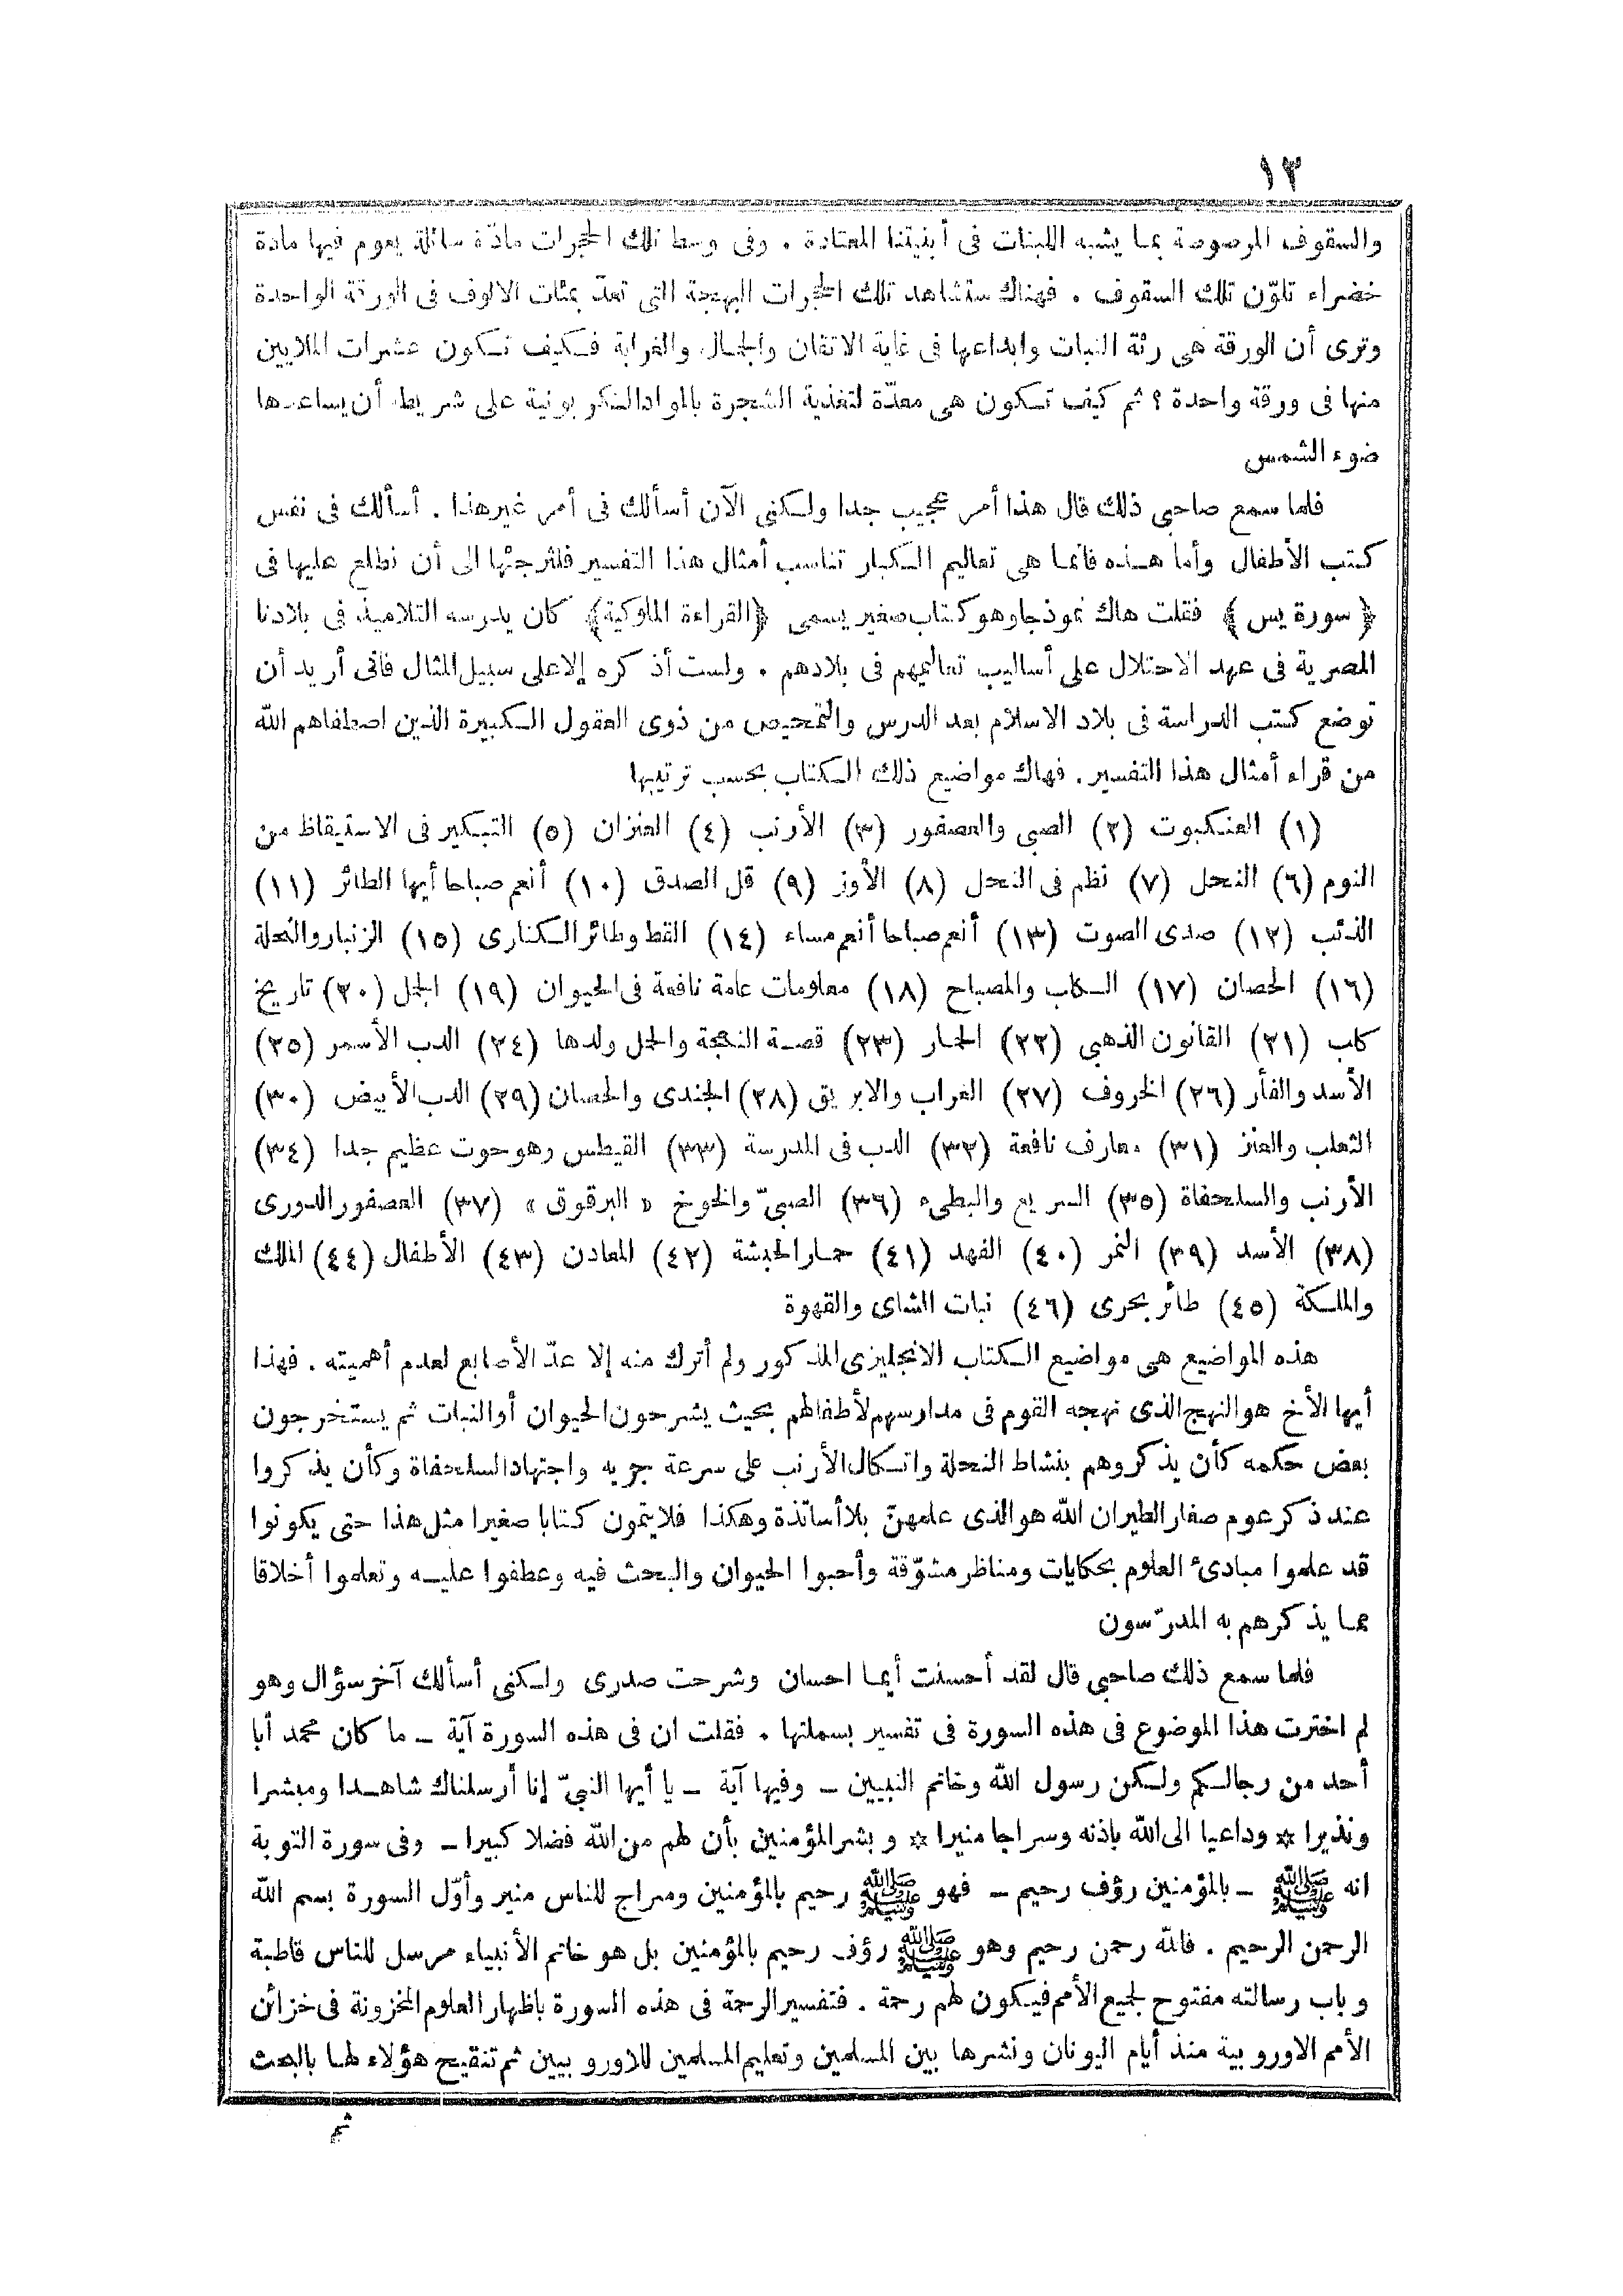 ١٢
والسقوف المرصوصة بما يشبه اللبنات فى أبنيتنا المعتادة . وفى وسط تلك الحجرات مادّة سائلة يعوم فيها مادة
خضراء تلوّن تلك السقوف . فهناك ستشاهد تلك الحجرات البهجة التى تعدّ بمئات الالوف فى الورقة الواحدة
وترى أن الورقة هى رئة النبات وابداعها فى غاية الاتقان والجمال والغرابة فكيف تكون عشرات الملايين
منها فى ورقة واحدة ؟ ثم كيف تكون هى معدّة لتغذية الشجرة بالمواد الكربونية على شريطة أن يساعدها
ضوء الشمس
فلما سمع صاحبى ذلك قال هذا أمر عجيب جدا ولكنى الآن أسألك فى أمر غير هذا . أسألك فى نفس
كتب الأطفال وأما هذه فانما هى تعاليم الكبار تناسب أمثال هذا التفسير فلنرجئها الى أن نطلع عليها فى
﴿ سورة يس ﴾ فقلت هاك نموذجا وهو كتاب صغير يسمى ﴿القراءة الملوكية﴾ كان يدرسه التلاميذ فى بلادنا
المصرية فى عهد الاحتلال على أساليب تعاليمهم فى بلادهم . ولست أذكره إلا على سبيل المثال فانى أريد أن
توضع كتب الدراسة فى بلاد الاسلام بعد الدرس والتمحيص من ذوى العقول الكبيرة الذين اصطفاهم الله
من قراء أمثال هذا التفسير . فهاك مواضيع ذلك الكتاب بحسب ترتيبها
(١) العنكبوت (٢) الصبى والعصفور (٣) الأرنب (٤) العنزان (٥) التبكير فى الاستيقاظ من
النوم (٦) النحل (٧) نظم فى النحل (٨) الأوز (٩) قل الصدق (١٠) أنعم صباحا أيها الطائر (١١)
الذئب (١٢) صدى الصوت (١٣) أنعم صباحا أنعم مساء (١٤) القط وطائر الكنارى (١٥) الزنبار والنحلة
(١٦) الحصان (١٧) الكلب والمصباح (١٨) معلومات عامة نافعة فى الحيوان (١٩) الجمل (٢٠) تاريخ
كلب (٢١) القانون الذهبى (٢٢) الحمار (٢٣) قصة النعجة والحمل ولدها (٢٤) الدب الأسمر (٢٥)
الأسد والفأر (٢٦) الخروف (٢٧) الغراب والابريق (٢٨) الجندى والحصان (٢٩) الدب الأبيض (٣٠)
الثعلب والعنز (٣١) معارف نافعة (٣٢) الدب فى المدرسة (٣٣) القيطس وهو حوت عظيم جدا (٣٤)
الأرنب والسلحفاة (٣٥) السريع والبطىء (٣٦) الصبىّ والخوخ « البرقوق » (٣٧) العصفور الدورى
(٣٨) الأسد (٣٩) النمر (٤٠) الفهد (٤١) حمار الحبشة (٤٢) المعادن (٤٣) الأطفال (٤٤) الملك
والملكة (٤٥) طائر بحرى (٤٦) نبات الشاى والقهوة
هذه المواضيع هى مواضيع الكتاب الانجليزى المذكور ولم أترك منه إلا عدّ الأصابع لعدم أهميته . فهذا
أيها الأخ هو النهج الذى نهجه القوم فى مدارسهم لأطفالهم بحيث يشرحون الحيوان أو النبات ثم يستخرجون
بعض حكمه كأن يذكروهم بنشاط النحلة واتكال الأرنب على سرعة جريه واجتهاد السلحفاة وكأن يذكروا
عند ذكر عوم صغار الطيران الله هو الذى علمهنّ بلا أساتذة وهكذا فلا يتمون كتابا صغيرا مثل هذا حتى يكونوا
قد علموا مبادئ العلوم بحكايات ومناظر مشوّقة وأحبوا الحيوان والبحث فيه وعطفوا عليه وتعلموا أخلاقا
مما يذكرهم به المدرّسون
فلما سمع ذلك صاحبى قال لقد أحسنت أيما احسان وشرحت صدرى ولكنى أسألك آخر سؤال وهو
لم اخترت هذا الموضوع فى هذه السورة فى تفسير بسملتها . فقلت ان فى هذه السورة آية ــ ما كان محمد أبا
أحد من رجالكم ولكن رسول الله وخاتم النبيين ــ وفيها آية ــ يا أيها النبىّ إنا أرسلناك شاهدا ومبشرا
ونذيرا * وداعيا الى الله باذنه وسراجا منيرا * وبشر المؤمنين بأن لهم من الله فضلا كبيرا ــ وفى سورة التوبة
انه ﷺ ــ بالمؤمنين رؤف رحيم ــ فهو ﷺ رحيم بالمؤمنين وسراج للناس منير وأوّل السورة بسم الله
الرحمن الرحيم . فالله رحمن رحيم وهو ﷺ رؤف رحيم بالمؤمنين بل هو خاتم الأنبياء مرسل للناس قاطبة
وباب رسالته مفتوح لجميع الأمم فيكون لهم رحمة . فتفسير الرحمة فى هذه السورة باظهار العلوم المخزونة فى خزائن
الأمم الاوروبية منذ أيام اليونان ونشرها بين المسلمين وتعليم المسلمين للاوروبيين ثم تنقيح هؤلاء لها بالبحث
ثم